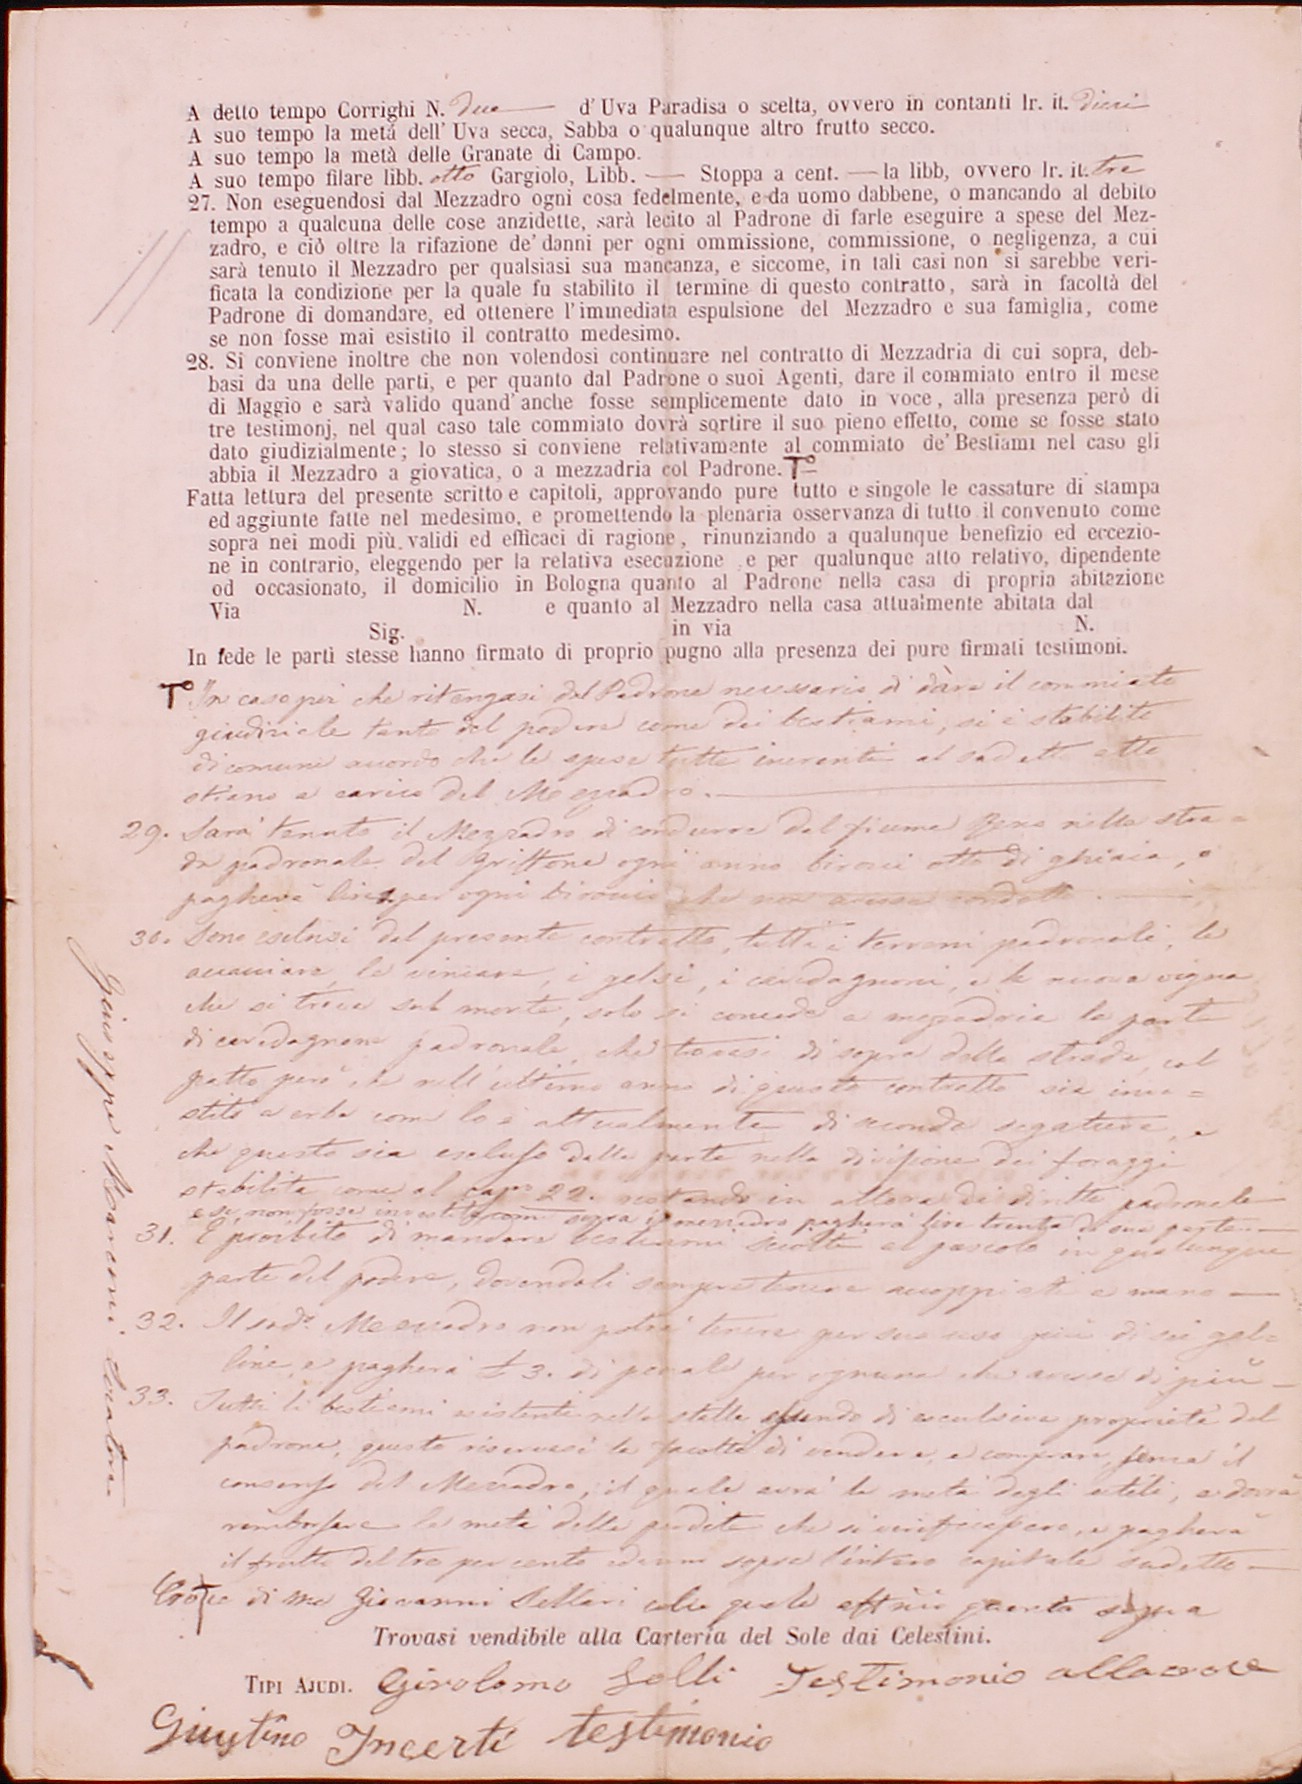 A detto tempo Corrighi N. due d'Uva Paradisa o scelta, ovvero in contanti lr. it. dieci
A suo tempo la metá dell'Uva secca, Sabba o qualunque altro frutto secco.
A suo tempo la metà delle Granate di Campo.
A suo tempo filare libb. otto Gargiolo, Libb. — Stoppa a cent. — la libb, ovvero lr. it. tre
27. Non eseguendosi dal Mezzadro ogni cosa fedelmente, e da uomo dabbene, o mancando al debito
tempo a qualcuna delle cose anzidette, sarà lecito al Padrone di farle eseguire a spese del Mez-
zadro, e ciò oltre la rifazione de' danni per ogni ommissione, commissione, o negligenza, a cui
sarà tenuto il Mezzadro per qualsiasi sua mancanza, e siccome, in tali casi non si sarebbe veri-
ficata la condizione per la quale fu stabilito il termine di questo contratto, sarà in facoltà del
Padrone di domandare, ed ottenere l'immediata espulsione del Mezzadro e sua famiglia, come
se non fosse mai esistito il contratto medesimo.
28. Si conviene inoltre che non volendosi continuare nel contratto di Mezzadria di cui sopra, deb-
basi da una delle parti, e per quanto dal Padrone o suoi Agenti, dare il commiato entro il mese
di Maggio e sarà valido quand'anche fosse semplicemente dato in voce, alla presenza però di
tre testimonj, nel qual caso tale commiato dovrà sortire il suo pieno effetto, come se fosse stato
dato giudizialmente; lo stesso si conviene relativamente al commiato de' Bestiami nel caso gli
abbia il Mezzadro a giovatica, o a mezzadria col Padrone.
Fatta lettura del presente scritto e capitoli, approvando pure tutto e singole le cassature di stampa
ed aggiunte fatte nel medesimo, e promettendo la plenaria osservanza di tutto il convenuto come
sopra nei modi più validi ed efficaci di ragione, rinunziando a qualunque benefizio ed eccezio-
ne in contrario, eleggendo per la relativa esecuzione e per qualunque atto relativo, dipendente
od occasionato, il domicilio in Bologna quanto al Padrone nella casa di propria abitazione
Via N. e quanto al Mezzadro nella casa attualmente abitata dal
Sig. in via N.
In fede le parti stesse hanno firmato di proprio pugno alla presenza dei pure firmati testimoni.
In caso poi che ritengasi dal Padrone necessario di dare il commiato
giudiziale tanto del podere come dei bestiami, si è stabilito
di comune accordo che le spese tutte inerenti al sud.tto atto
stiano a carico del Mezzadro.
29. Sarà tenuto il Mezzadro di condurre dal fiume Reno nella stra=
da padronale del Grifone ogni anno birocci otto di ghiaia, o
pagherà lire per ogni biroccio che non avesse condotto.
30. Sono esclusi dal presente contratto, tutti i terreni padronali, le
, le , i gelsi, i cavedagnoni, e la nuova vigna
che si trova sul monte, solo si concede a mezzadria la parte
di cavedagnone padronale, che trovasi di sopra della strada, col
patto però che nell'ultimo anno di questo contratto sia inve=
stito a erba come lo è attualmente di seconda segatura, e
che questo sia escluso dalla parte nella divisione dei foraggi
stabilita come al capo 22. restando in allora di diritto padronale
e se non fosse investito come sopra il mezzadro pagherà lire trenta di sua parte
31. È proibito di mandare bestiami sciolti al pascolo in qualunque
parte del podere, dovendoli sempre tenere accoppiati a mano
32. Il sud.o Mezzadro non potrà tenere per suo uso più di sei gal=
line, e pagherà £ 3. di penale per ognuna che avesse di più
33. Tutti li bestiami esistenti nella stalla essendo di esclusiva proprietà del
padrone, questo riservasi la facoltà di vendere, e comprare, senza il
consenso del Mezzadro, il quale avrà la metà degli utili, e dovrà
rimborsare la metà delle perdite che si verificassero, e pagherà
il frutto del tre per cento annuo sopra l'intero capitale sudetto
Croce di me Giovanni Sellari alla quale affermo quanto sopra
Trovasi vendibile alla Carteria del Sole dai Celestini.
Tipi Ajudi. Girolomo Solli Testimonio alla croce
Giustino Incerti testimonio
Giuseppe Marconi